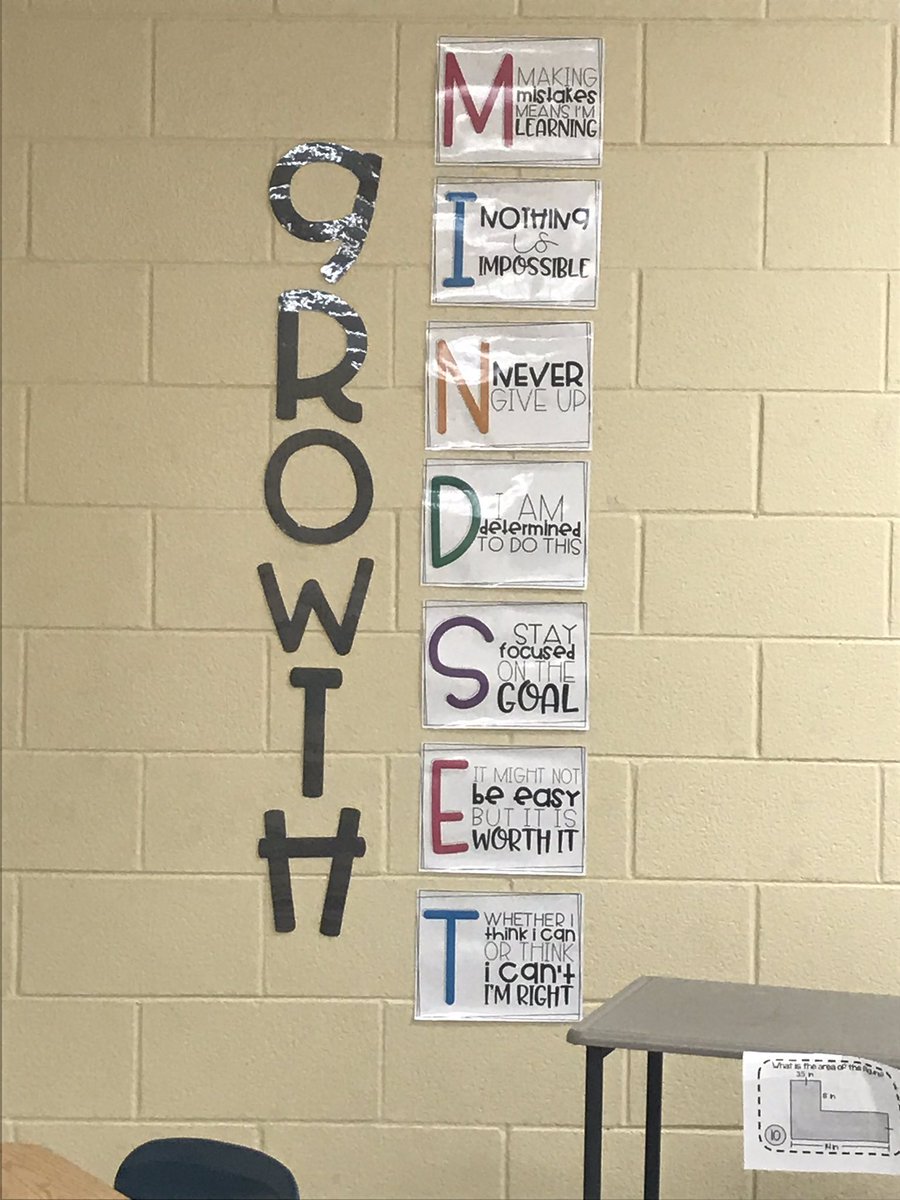 gROWTH
M
MAKING
mistakes
MEANS I'M
LEARNING
I
NOTHINg
is
IMPOSSIBLE
N
NEVER
GIVE UP
D
I AM
determined
TO DO THIS
S
STAY
focused
ON THE
GOAL
E
IT MIGHT NOT
be easy
BUT IT IS
WORTH IT
T
WHETHER I
think i can
OR THINK
i can't
I'M RIGHT
What is the area of this figure?
3.5 in
8 in
10
14 in